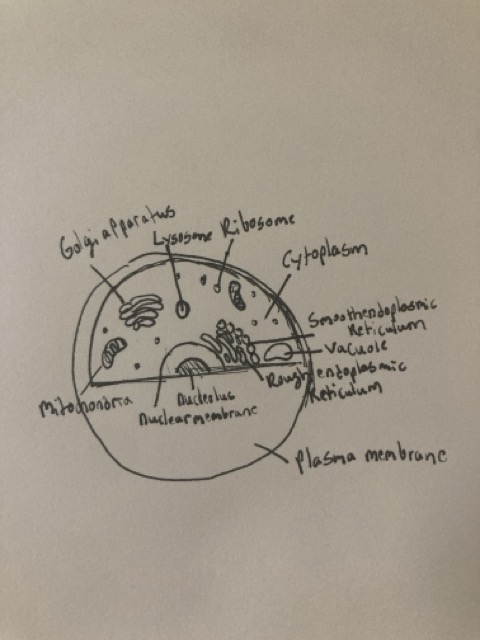 Golgi apparatus
Lysosome
Ribosome
Cytoplasm
Smooth endoplasmic
Reticulum
Vacuole
Rough endoplasmic
Reticulum
Mitochondria
Nucleolus
Nuclear membrane
Plasma membrane